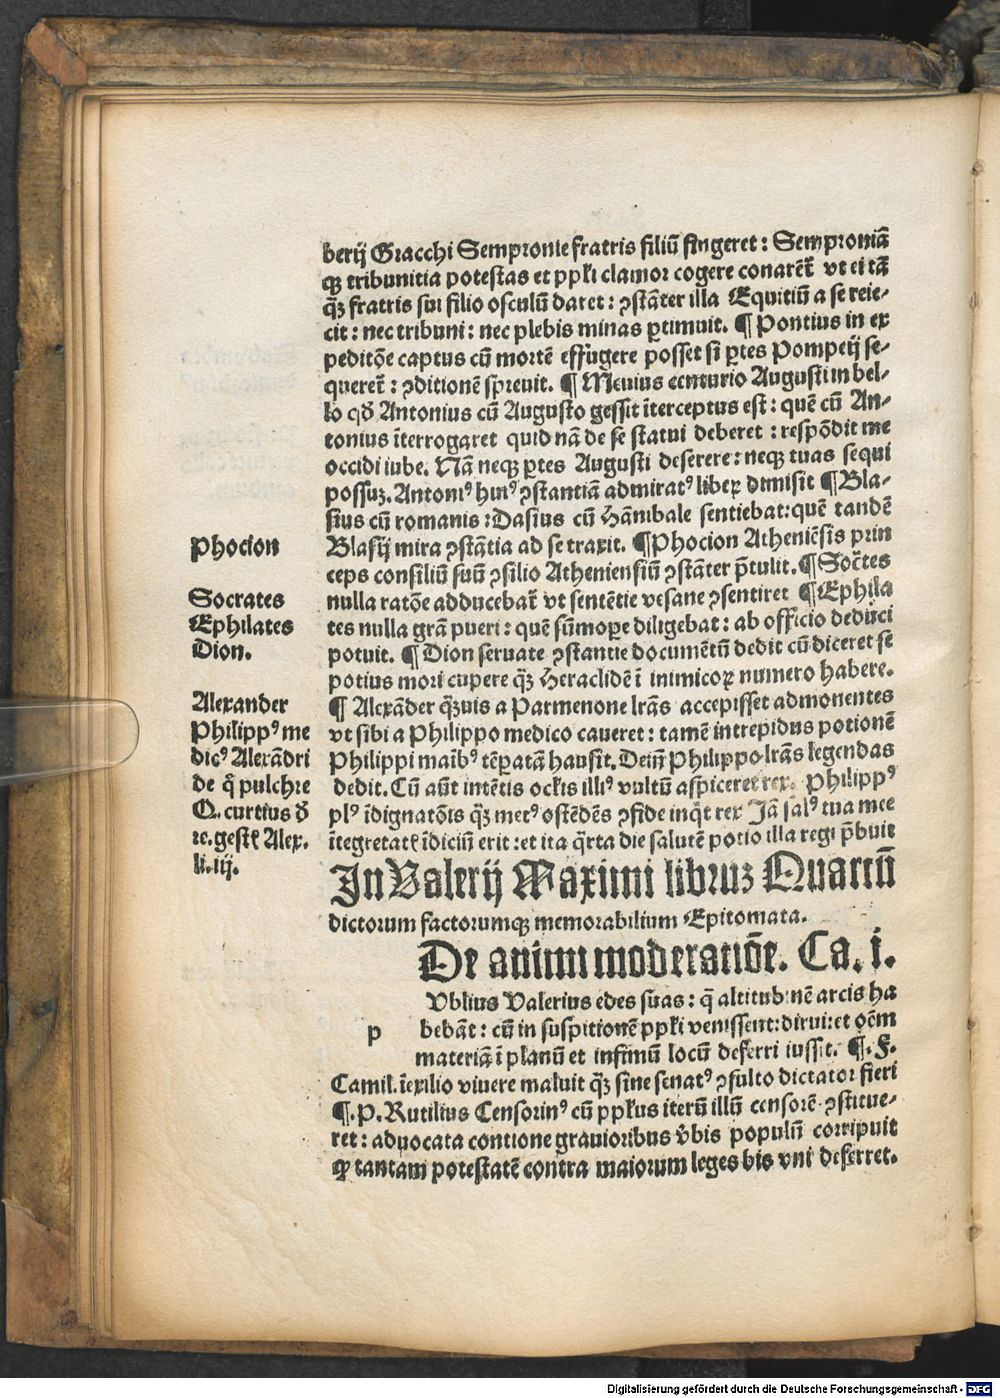 berij Gracchi Sempronie fratris filiū fingeret: Semproniā
qꝫ tribunitia potestas et ppl'i clamor cogere conaret᷑ vt ei tā
q̄ꝫ fratris sui filio osculū daret: ꝯstāter illa Equitiū a se reie-
cit: nec tribuni: nec plebis minas ꝑtimuit. ¶ Pontius in ex
peditōe captus cū mortē effugere posset si ꝑtes Pompeij se-
queret᷑: ꝯditionē spreuit. ¶ Meuius centurio Augusti in bel-
lo qd̄ Antonius cū Augusto gessit īterceptus est: quē cū An-
tonius īterrogaret quid nā de se statui deberet: respōdit me
occidi iube. Nā neqꝫ ꝑtes Augusti deserere: neqꝫ tuas sequi
possuꝫ. Antoniꝰ huiꝰ ꝯstantiā admiratꝰ libeꝝ dimisit ¶ Bla-
sius cū romanis: Dasius cū Hānibale sentiebat: quē tandē
Blasij mira ꝯstātia ad se traxit. ¶ Phocion Atheniēsis prin
ceps consiliū suū ꝯsilio Atheniensiū ꝯstāter p̄tulit. ¶ Socr̄tes
nulla ratōe adducebat᷑ vt sentētie vesane ꝯsentiret ¶ Ephila
tes nulla grā pueri: quē sūmoꝑe diligebat: ab officio deduci
potuit. ¶ Dion seruate ꝯstantie documētū dedit cū diceret se
potius mori cupere q̄ꝫ Heraclidē ī inimicoꝝ numero habere.
¶ Alexāder q̄ꝫuis a Parmenone lrās accepisset admonentes
vt sibi a Philippo medico caueret: tamē intrepidus potionē
Philippi maibꝰ tēꝑatā hausit. Dein̄ Philippo lrās legendas
dedit. Cū aūt intētis ocl'is illiꝰ vultū aspiceret rex. Philippꝰ
plꝰ īdignatōis q̄ꝫ metꝰ ostēdēs ꝯfide inq̄t rex Jā salꝰ tua mee
ītegretatꝭ īdiciū erit: et ita q̄rta die salutē potio illa regi p̄buit
In Valerij Maximi libruꝫ Quartū
dictorum factorumqꝫ memorabilium Epitomata.
De animi moderatiōe. Ca. i.
p Vblius Valerius edes suas: q̄ altitudinē arcis ha
bebāt: cū in suspitionē ppl'i venissent: dirui: et oēm
materiā ī planū et infimū locū deferri iussit. ¶ .F.
Camil. ī exilio viuere maluit q̄ꝫ sine senatꝰ ꝯsulto dictator fieri
¶ .P. Rutilius Censorinꝰ cū ppl'us iterū illū censorē ꝯstitue-
ret: aduocata contione grauioribus v̄bis populū corripuit
qꝫ tantam potestatē contra maiorum leges bis vni deferret.
Phocion
Socrates
Ephilates
Dion.
Alexander
Philippꝰ me
dicꝰ Alexādri
de q̄ pulchre
Q. curtius d̄
re. gestꝭ Alex.
li. iij.
Digitalisierung gefördert durch die Deutsche Forschungsgemeinschaft - DFG